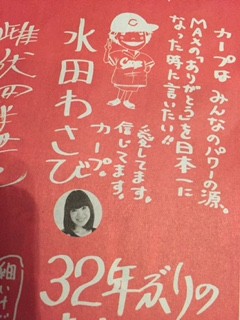 カープは みんなのパワーの源。
MAXの「ありがとう」を日本一に
なった時に言いたい!!
愛してます。
信じてます。
カープ。
水田わさび
32年ぶりの
細いけど